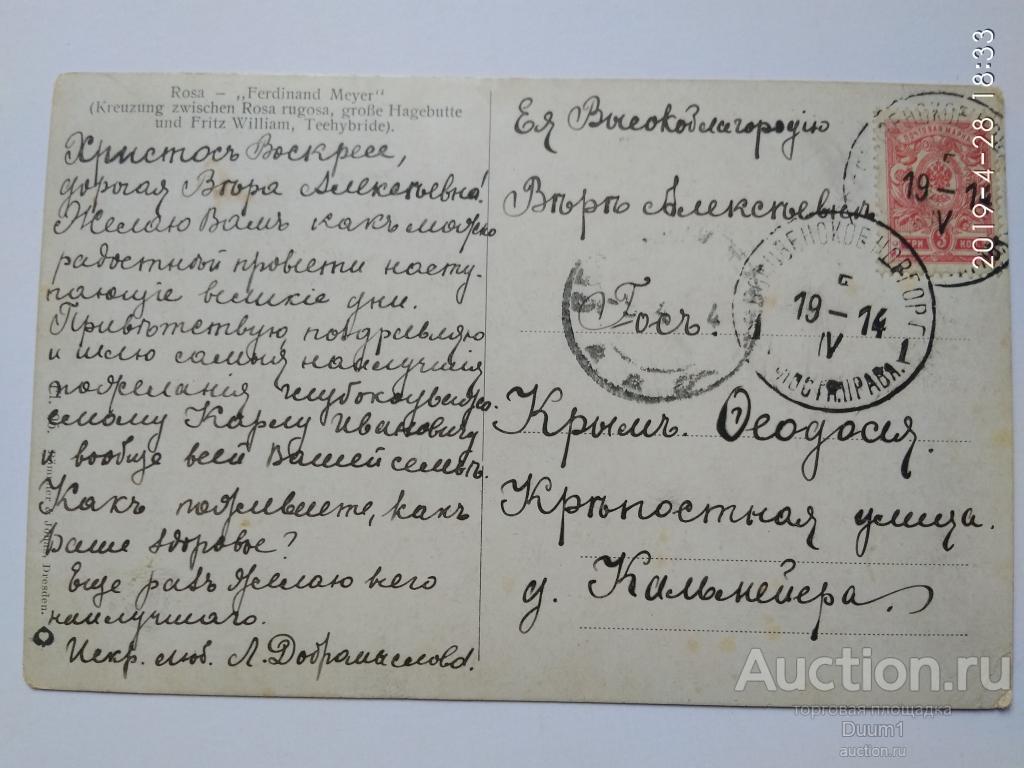 Rosa – „Ferdinand Meyer"
(Kreuzung zwischen Rosa rugosa, große Hagebutte
und Fritz William, Teehybride).
Христосъ Воскресе,
дорогая Вѣра Алексѣевна!
Желаю Вамъ какъ можно
радостный провести насту-
пающіе великіе дни.
Привѣтствую, поздравляю
и шлю самыя наилучшія
пожеланія глубокоуважа-
емому Карлу Ивановичу
и вообще всей Вашей семьѣ.
Какъ поживаете, какъ
Ваше здоровье?
Еще разъ желаю всего
наилучшаго.
Искр. люб. Л. Добромыслова.
Dresden.
Ея Высокоблагородію
Вѣрѣ Алексѣевнѣ
Госъ.
Крымъ. Ѳеодосія.
Крѣпостная улица.
д. Кальмейера.
19 – 14
IV
19 – 14
IV
1
ТРИ КОП
2019-4-28 18:33
Auction.ru
торговая площадка
Duum1
auction.ru